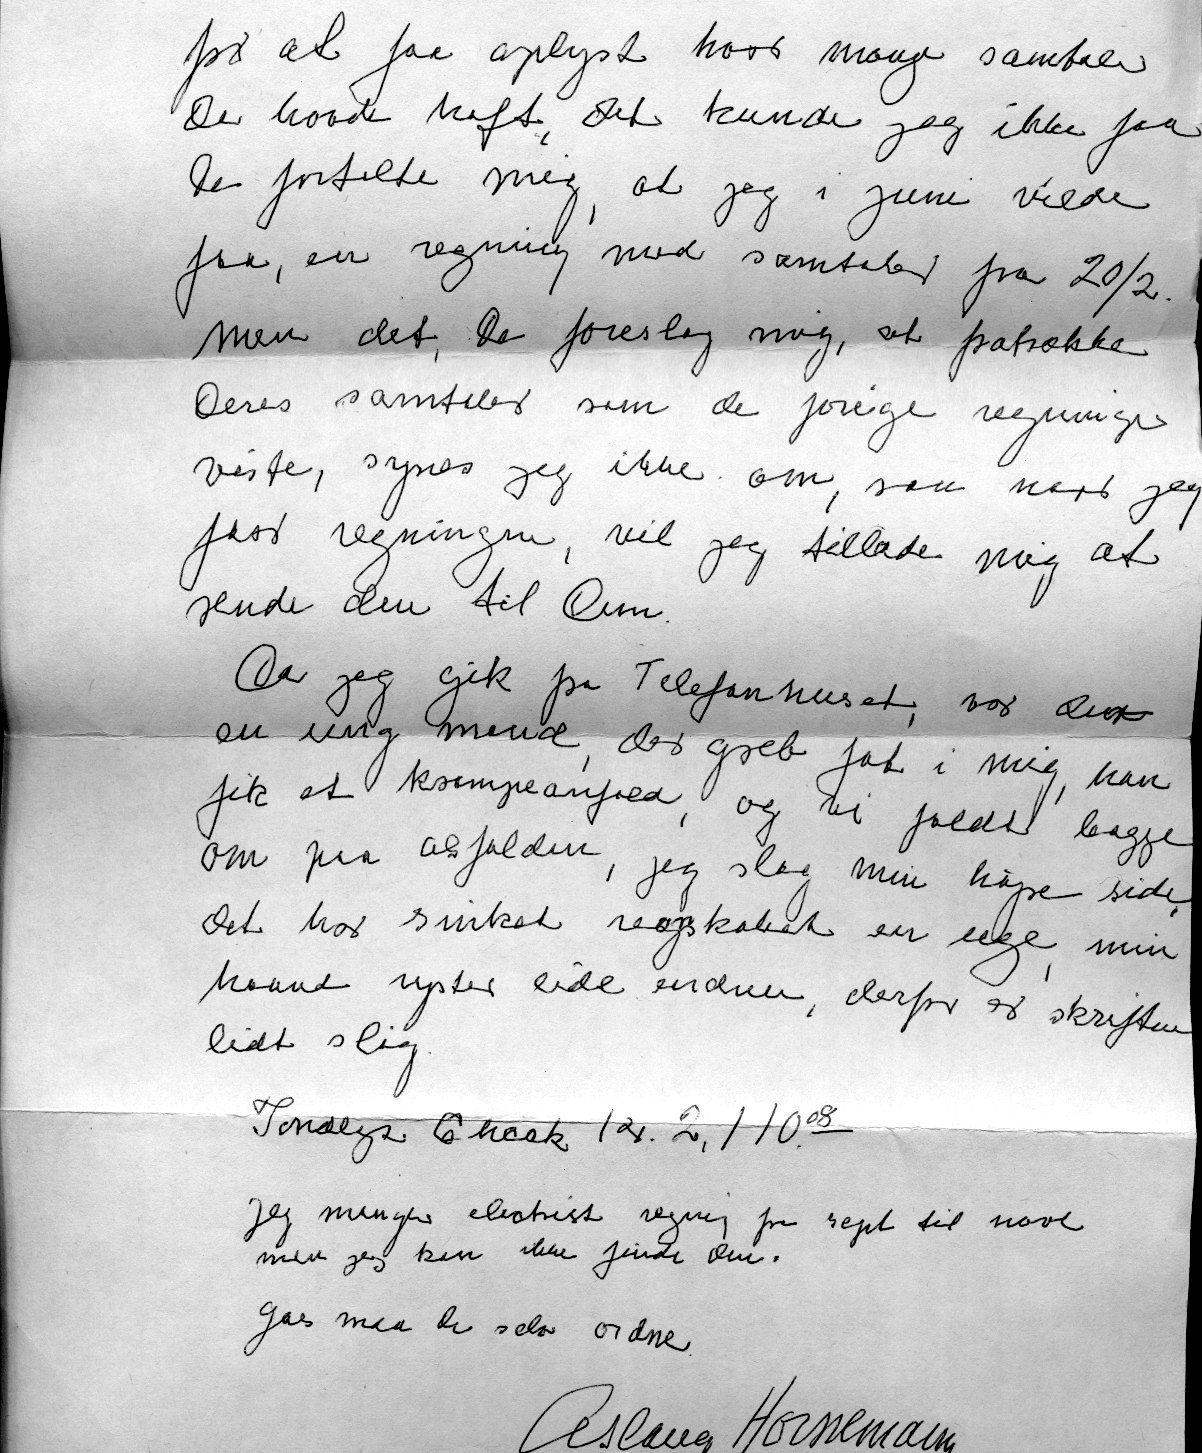 for at faa oplyst hvor mange samtaler
De havde haft, det kunde jeg ikke faa
De fortalte mig, at jeg i juni vilde
faa, en regning med samtaler fra 20/2.
Men det, De foreslog mig, at fratrække
Deres samtaler som de forige regninger
viste, synes jeg ikke om, saa naar jeg
faar regningen, vil jeg tillade mig at
sende den til Dem.
Da jeg gik fra Telefonhuset, var der
en ung mand, der greb fat i mig, han
fik et krampeanfald, og vi faldt begge
om paa asfalden, jeg slog min højre side,
det har sinket regnskabet en uge, min
haand ryster lidt endnu, derfor er skriften
lidt slig.
Indlagt Check kr. 2,110.08
Jeg mangler electrisk regning fra sept til nov
men jeg kan ikke finde den.
Gas maa De selv ordne.
Aslaug Hornemann